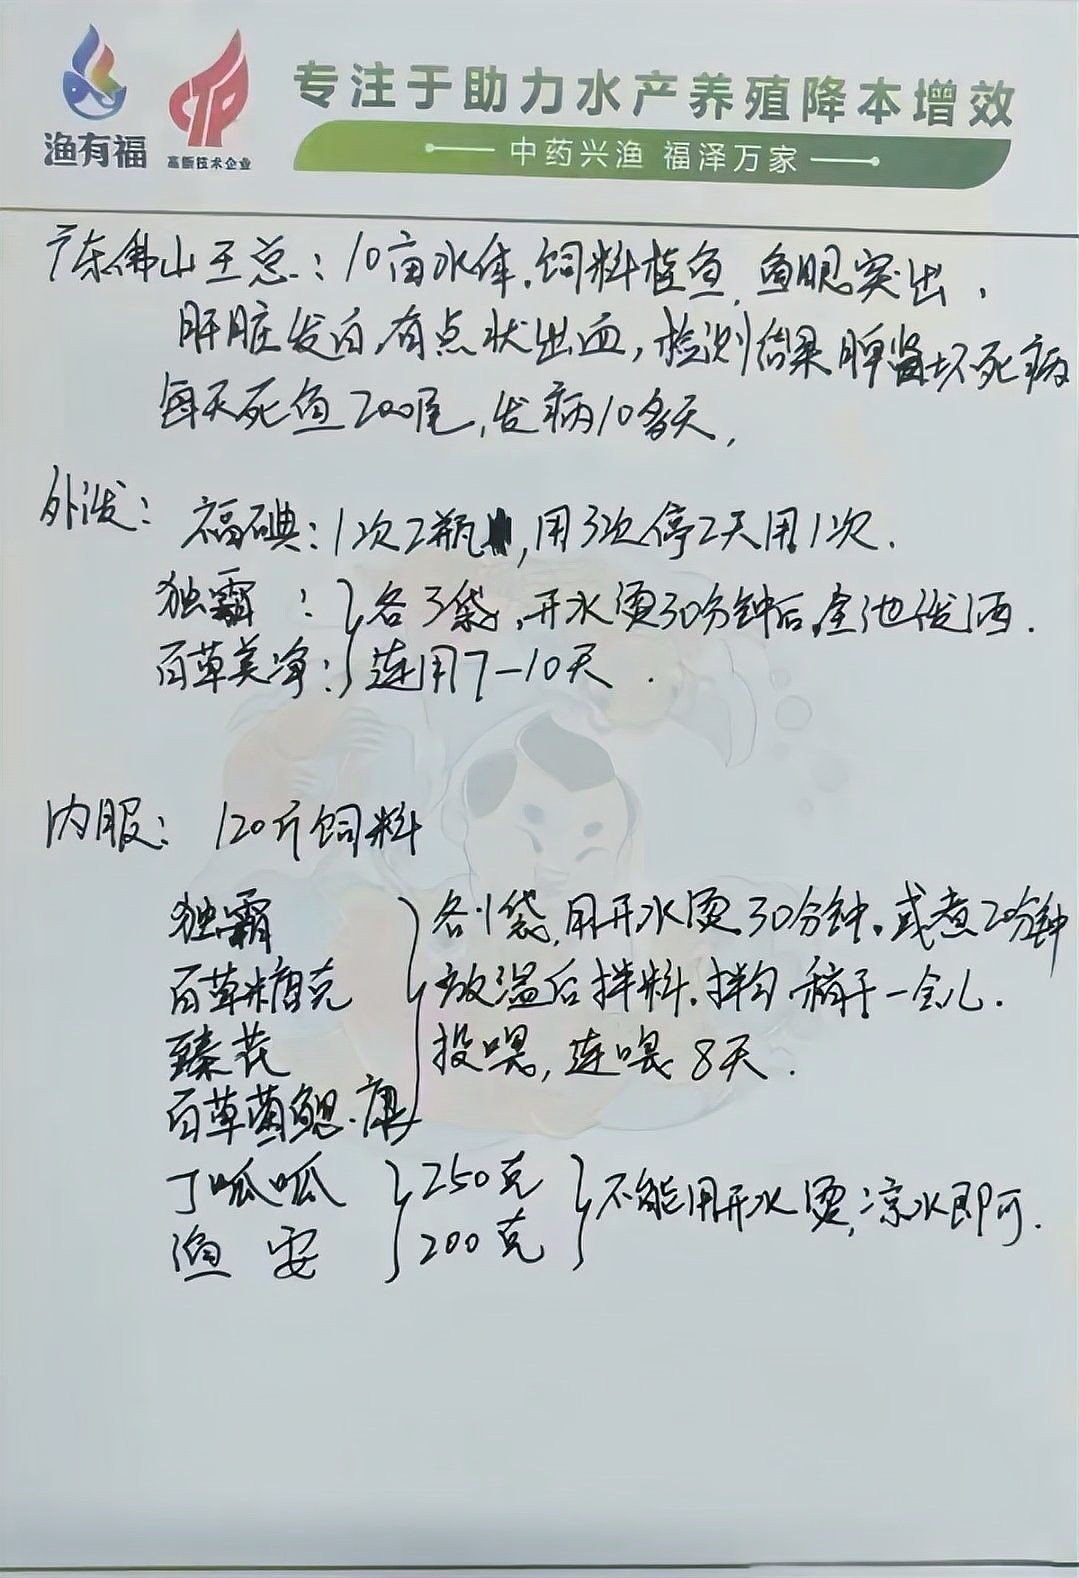 渔有福
高新技术企业
专注于助力水产养殖降本增效
中药兴渔 福泽万家
广东佛山王总：10亩水体，饲料桂鱼，鱼眼突出，
肝脏发白，有点状出血，检测结果脾肾坏死病
每天死鱼200尾，发病10多天，
外泼：福碘：1次2瓶，用3次停2天用1次．
独霸：} 各3袋，开水烫30分钟后，全池泼洒．
百草美净：} 连用7-10天．
内服：120斤饲料
独霸 } 各1袋，用开水烫30分钟，或煮20分钟
百草瘟克 放温后拌料，拌匀稍干一会儿．
臻花 投喂，连喂8天．
百草菌鳃康
丁呱呱 } 250克 } 不能用开水烫，凉水即可．
渔安 } 200克